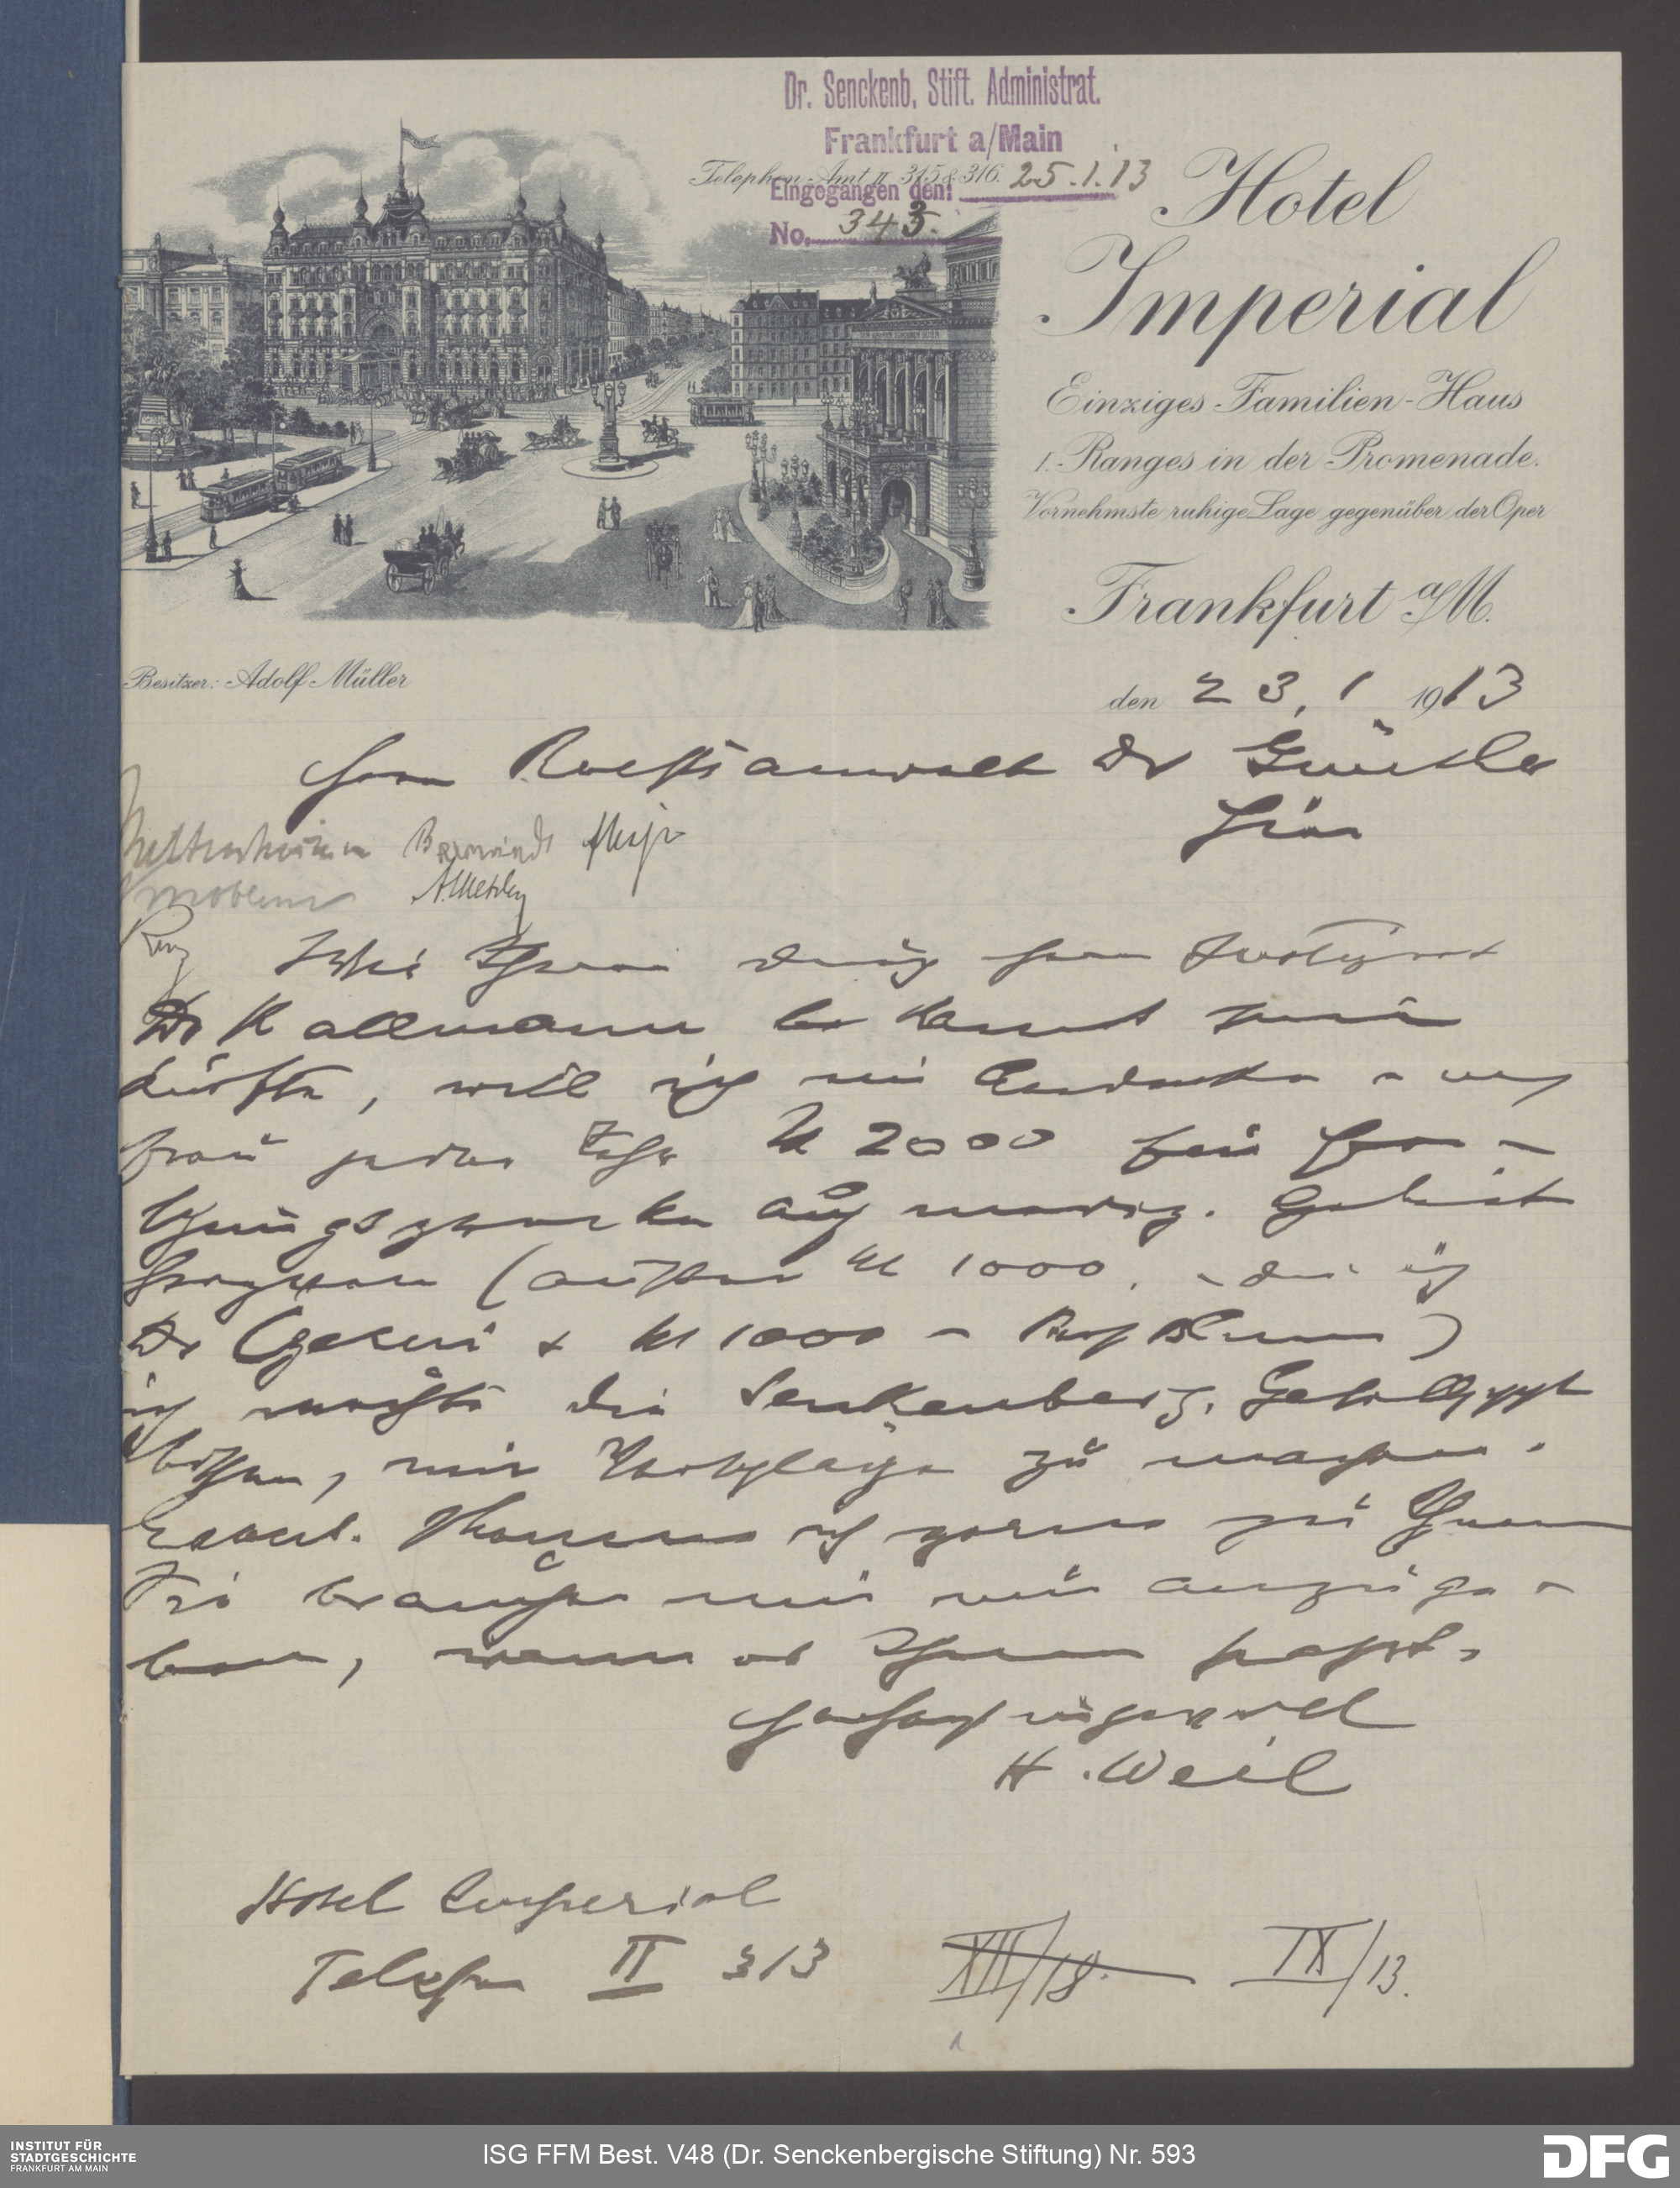 Dr. Senckenb. Stift. Administrat.
Frankfurt a/Main
Telephon-Amt II 315 & 316.
Eingegangen den: 25.1.13
No. 343.
Hotel
Imperial
Einziges Familien-Haus
I. Ranges in der Promenade.
Vornehmste ruhige Lage gegenüber der Oper
Frankfurt a/M.
Besitzer: Adolf Müller
den 23. 1 1913
Herrn Rechtsanwalt Dr Günther
hier
A. Metzler
Wie Ihnen durch Herrn Justizrat
Dr Kallmann bekannt sein
dürfte, will ich im Andenken m
Frau jedes Jahr M 2000 für For-
schungszwecke auf mediz. Gebiet
(außer M 1000. - die ich
Dr & M 1000 - Prof )
ich möchte die Senkenberg. Gesellschaft
bitten, mir Vorschläge zu machen.
Event. komme ich gerne zu Ihnen
Sie brauchen mir nur anzuge-
ben, wann es Ihnen passt.
Hochachtungsvoll
H. Weil
Hotel Imperial
Telefon II 313
XII/18. IX/13.
INSTITUT FÜR
STADTGESCHICHTE
FRANKFURT AM MAIN
ISG FFM Best. V48 (Dr. Senckenbergische Stiftung) Nr. 593
DFG